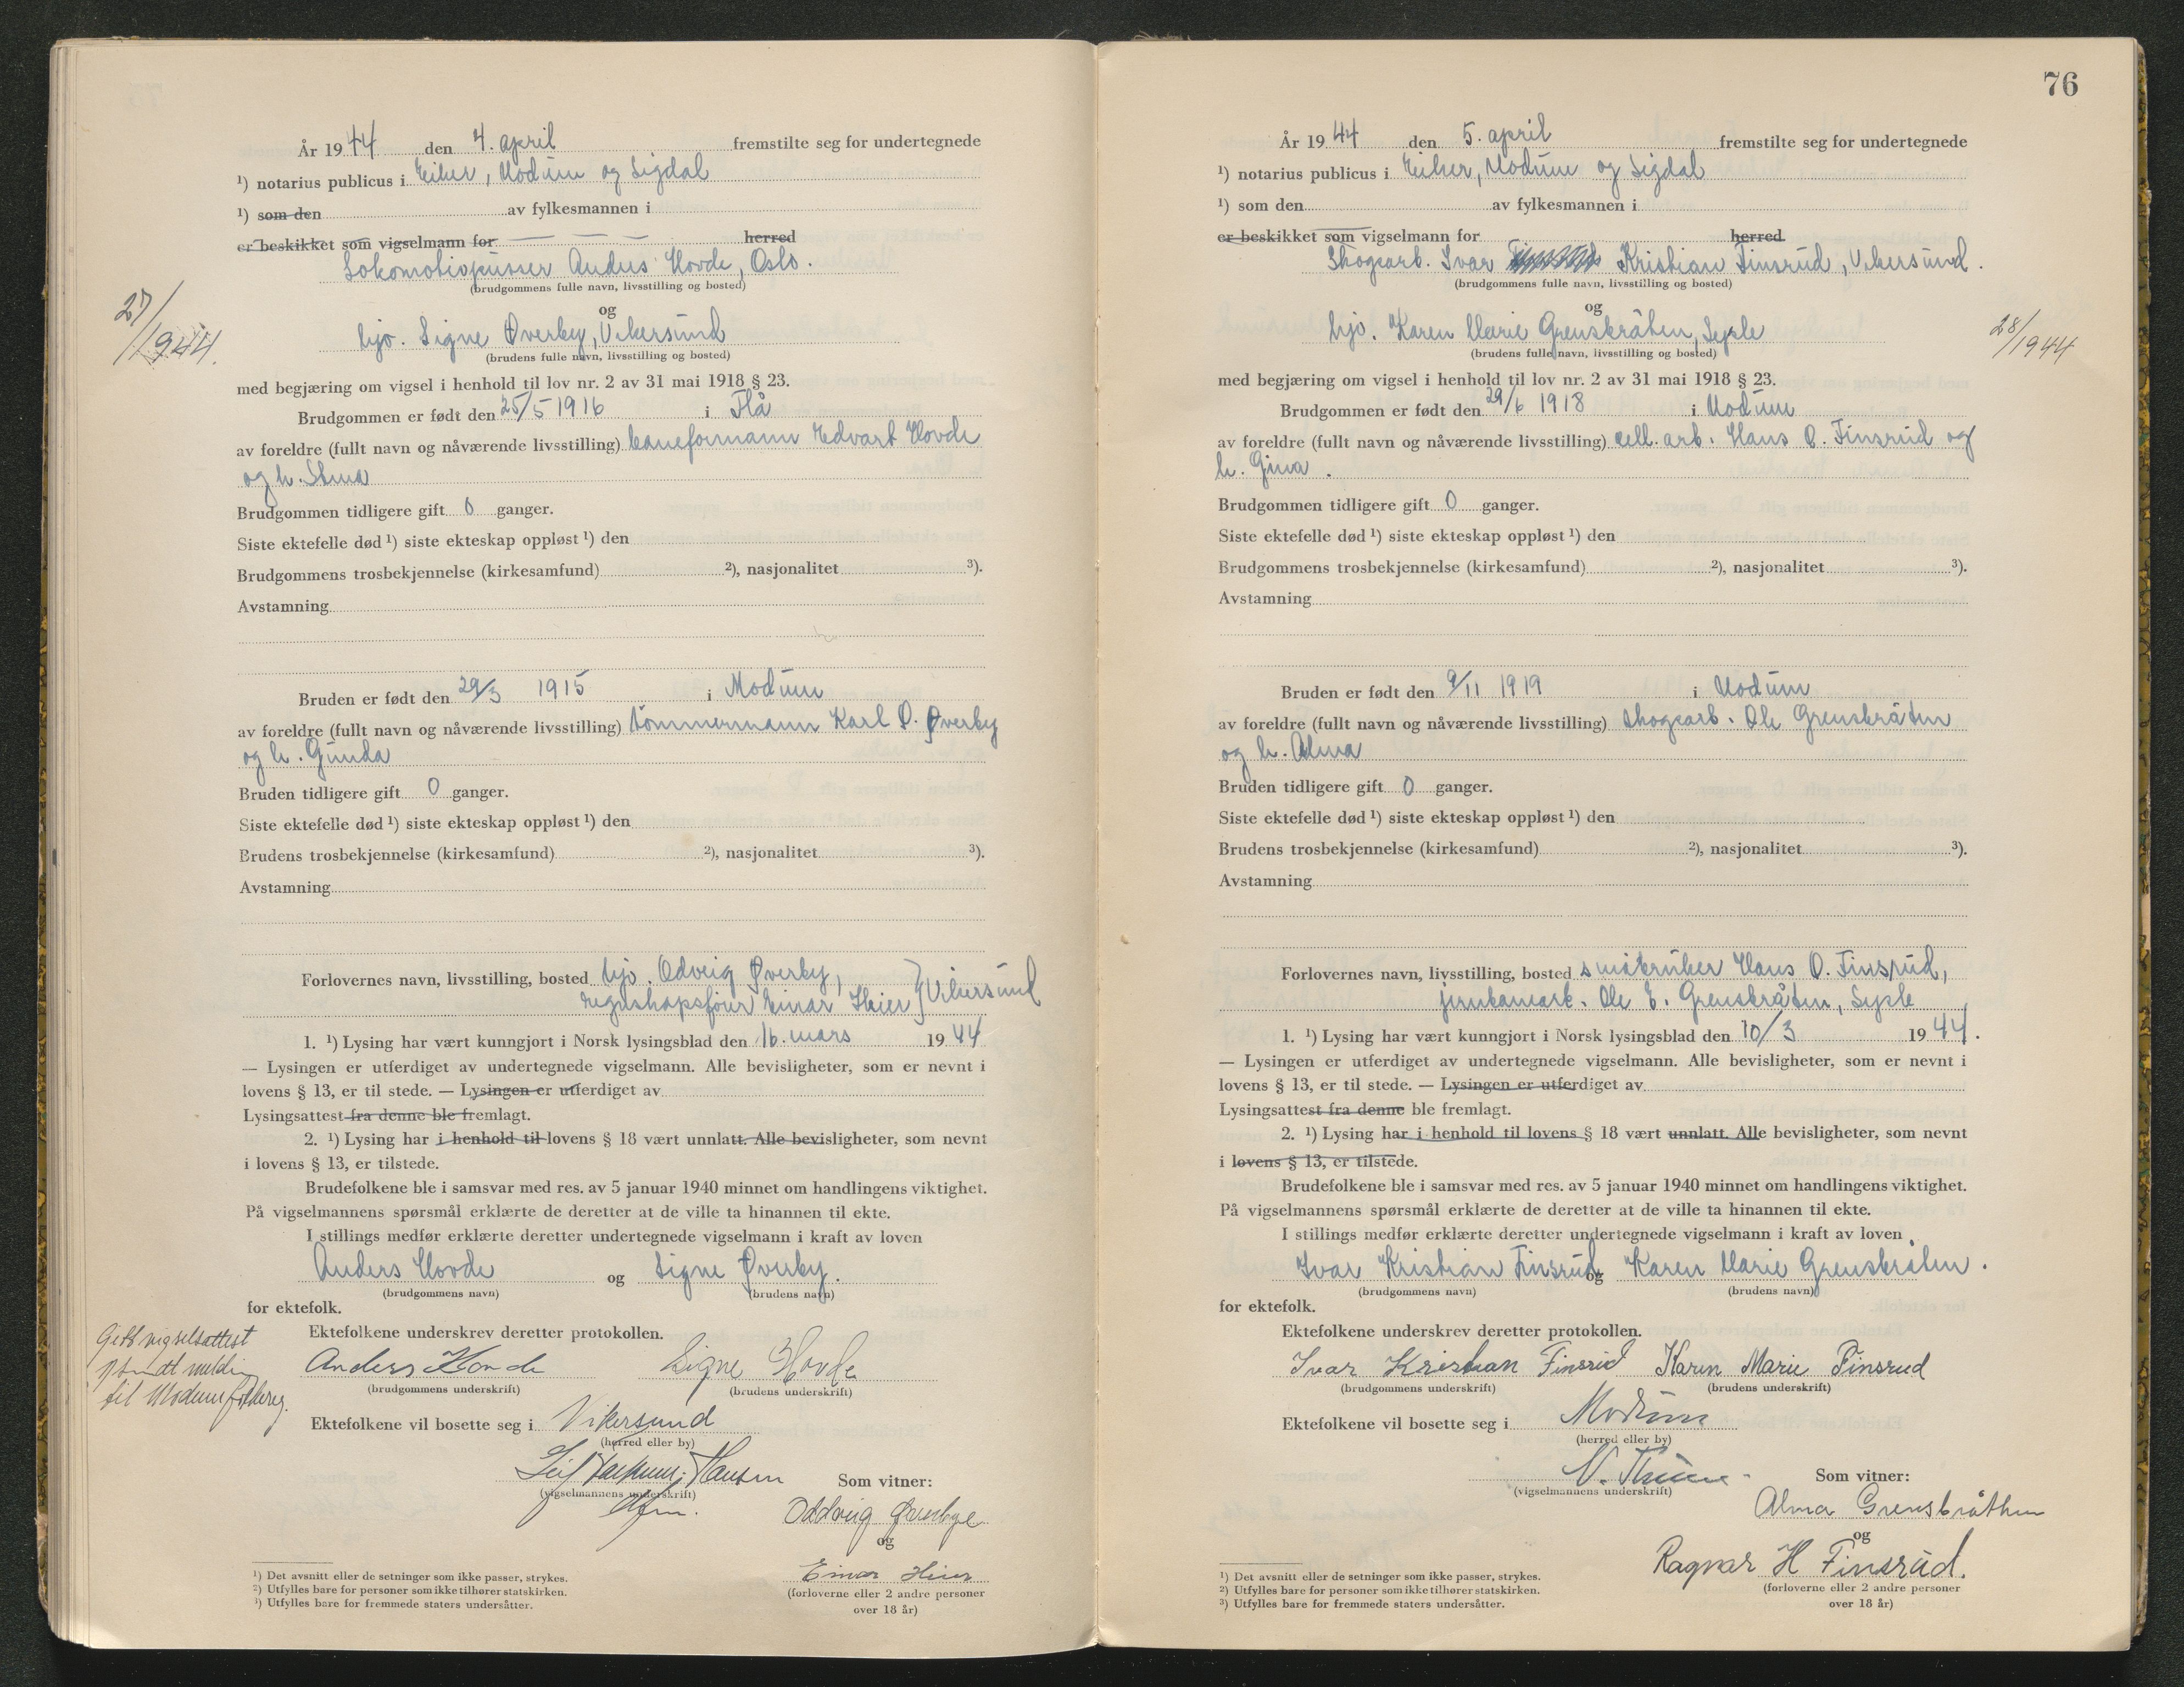 År 1944 den 4. april fremstilte seg for undertegnede
¹) notarius publicus i Eiker, Modum og Sigdal
¹) som den av fylkesmannen i
er beskikket som vigselmann for — — — herred
Lokomotivpusser Anders Hovde, Oslo.
(brudgommens fulle navn, livsstilling og bosted)
og
27/1944.
hjv. Signe Øverby, Vikersund
(brudens fulle navn, livsstilling og bosted)
med begjæring om vigsel i henhold til lov nr. 2 av 31 mai 1918 § 23.
Brudgommen er født den 25/5 1916 i Flå
av foreldre (fullt navn og nåværende livsstilling) baneformann Edvart Hovde
og h. Stina
Brudgommen tidligere gift 0 ganger.
Siste ektefelle død ¹) siste ekteskap oppløst ¹) den
Brudgommens trosbekjennelse (kirkesamfund) ²), nasjonalitet ³).
Avstamning
Bruden er født den 29/3 1915 i Modum
av foreldre (fullt navn og nåværende livsstilling) tömmermann Karl O. Øverby
og h. Gunda
Bruden tidligere gift 0 ganger.
Siste ektefelle død ¹) siste ekteskap oppløst ¹) den
Brudens trosbekjennelse (kirkesamfund) ²), nasjonalitet ³).
Avstamning
Forlovernes navn, livsstilling, bosted hjv. Odveig Øverby,
regnskapsförer Einar Heier } Vikersund
1. ¹) Lysing har vært kunngjort i Norsk lysingsblad den 16. mars 1944
— Lysingen er utferdiget av undertegnede vigselmann. Alle bevisligheter, som er nevnt i
lovens § 13, er til stede. — Lysingen er utferdiget av
Lysingsattest fra denne ble fremlagt.
2. ¹) Lysing har i henhold til lovens § 18 vært unnlatt. Alle bevisligheter, som nevnt
i lovens § 13, er tilstede.
Brudefolkene ble i samsvar med res. av 5 januar 1940 minnet om handlingens viktighet.
På vigselmannens spørsmål erklærte de deretter at de ville ta hinannen til ekte.
I stillings medfør erklærte deretter undertegnede vigselmann i kraft av loven
Anders Hovde og Signe Øverby.
(brudgommens navn) (brudens navn)
for ektefolk.
Ektefolkene underskrev deretter protokollen.
Gitt vigselsattest
sendt melding
til Modum folkereg.
Anders Hovde Signe Hovde
(brudgommens underskrift) (brudens underskrift)
Ektefolkene vil bosette seg i Vikersund
(herred eller by)
Hansen Som vitner:
(vigselmannens underskrift)
Oddveig Øverbye
og
Einar Heier
(forloverne eller 2 andre personer
over 18 år)
¹) Det avsnitt eller de setninger som ikke passer, strykes.
²) Utfylles bare for personer som ikke tilhører statskirken.
³) Utfylles bare for fremmede staters undersåtter.
76
År 1944 den 5. april fremstilte seg for undertegnede
¹) notarius publicus i Eiker, Modum og Sigdal
¹) som den av fylkesmannen i
er beskikket som vigselmann for herred
Skogsarb. Ivar Kristian Finsrud, Vikersund.
(brudgommens fulle navn, livsstilling og bosted)
og
hjv. Karen Marie Grensbråten, Sysle
28/1944
(brudens fulle navn, livsstilling og bosted)
med begjæring om vigsel i henhold til lov nr. 2 av 31 mai 1918 § 23.
Brudgommen er født den 29/6 1918 i Modum
av foreldre (fullt navn og nåværende livsstilling) cell. arb. Hans O. Finsrud og
h. Gina.
Brudgommen tidligere gift 0 ganger.
Siste ektefelle død ¹) siste ekteskap oppløst ¹) den
Brudgommens trosbekjennelse (kirkesamfund) ²), nasjonalitet ³).
Avstamning
Bruden er født den 9/11 1919 i Modum
av foreldre (fullt navn og nåværende livsstilling) skogsarb. Ole Grensbråten
og h. Alma
Bruden tidligere gift 0 ganger.
Siste ektefelle død ¹) siste ekteskap oppløst ¹) den
Brudens trosbekjennelse (kirkesamfund) ²), nasjonalitet ³).
Avstamning
Forlovernes navn, livsstilling, bosted småbruker Hans O. Finsrud,
Ole E. Grensbråten, Sysle
1. ¹) Lysing har vært kunngjort i Norsk lysingsblad den 10/3 1944.
— Lysingen er utferdiget av undertegnede vigselmann. Alle bevisligheter, som er nevnt i
lovens § 13, er til stede. — Lysingen er utferdiget av
Lysingsattest fra denne ble fremlagt.
2. ¹) Lysing har i henhold til lovens § 18 vært unnlatt. Alle bevisligheter, som nevnt
i lovens § 13, er tilstede.
Brudefolkene ble i samsvar med res. av 5 januar 1940 minnet om handlingens viktighet.
På vigselmannens spørsmål erklærte de deretter at de ville ta hinannen til ekte.
I stillings medfør erklærte deretter undertegnede vigselmann i kraft av loven
Ivar Kristian Finsrud og Karen Marie Grensbråten.
(brudgommens navn) (brudens navn)
for ektefolk.
Ektefolkene underskrev deretter protokollen.
Ivar Kristian Finsrud Karen Marie Finsrud
(brudgommens underskrift) (brudens underskrift)
Ektefolkene vil bosette seg i Modum
(herred eller by)
N. Thune Som vitner:
(vigselmannens underskrift)
Alma Grensbråthen
og
Ragnar H Finsrud.
(forloverne eller 2 andre personer
over 18 år)
¹) Det avsnitt eller de setninger som ikke passer, strykes.
²) Utfylles bare for personer som ikke tilhører statskirken.
³) Utfylles bare for fremmede staters undersåtter.